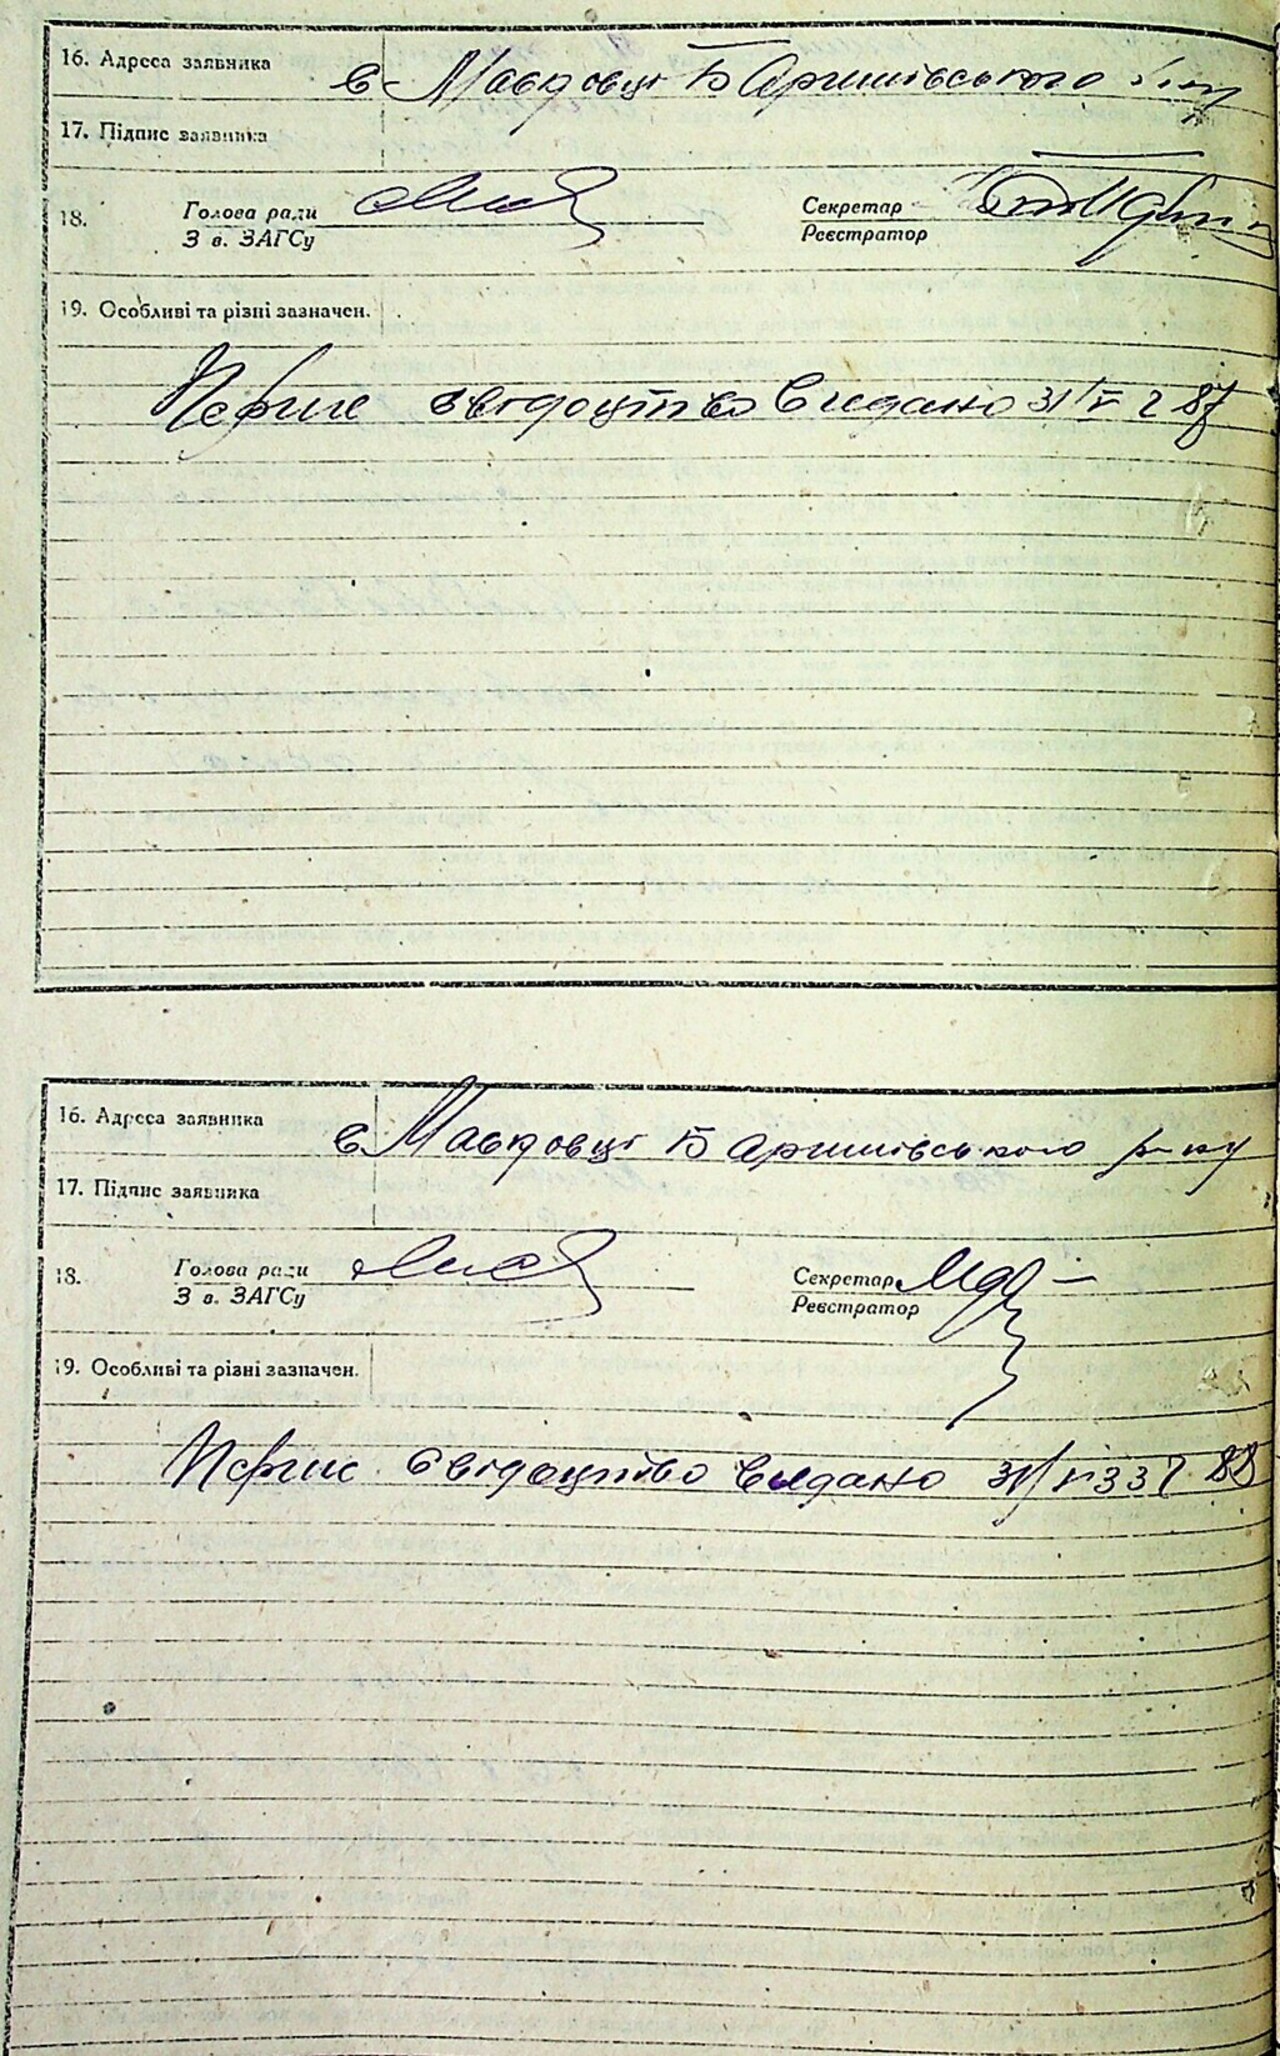 16. Адреса заявника в Мавковці Баришівського р-ну
17. Підпис заявника
18. Голова ради Секретар
З в. ЗАГСу Реєстратор
19. Особливі та різні зазначен.
Перше свідоцтво видано 31/V 87
16. Адреса заявника в Мавковці Баришівського р-ну
17. Підпис заявника
18. Голова ради Секретар
З в. ЗАГСу Реєстратор
19. Особливі та різні зазначен.
Перше свідоцтво видано 31/V 33 88